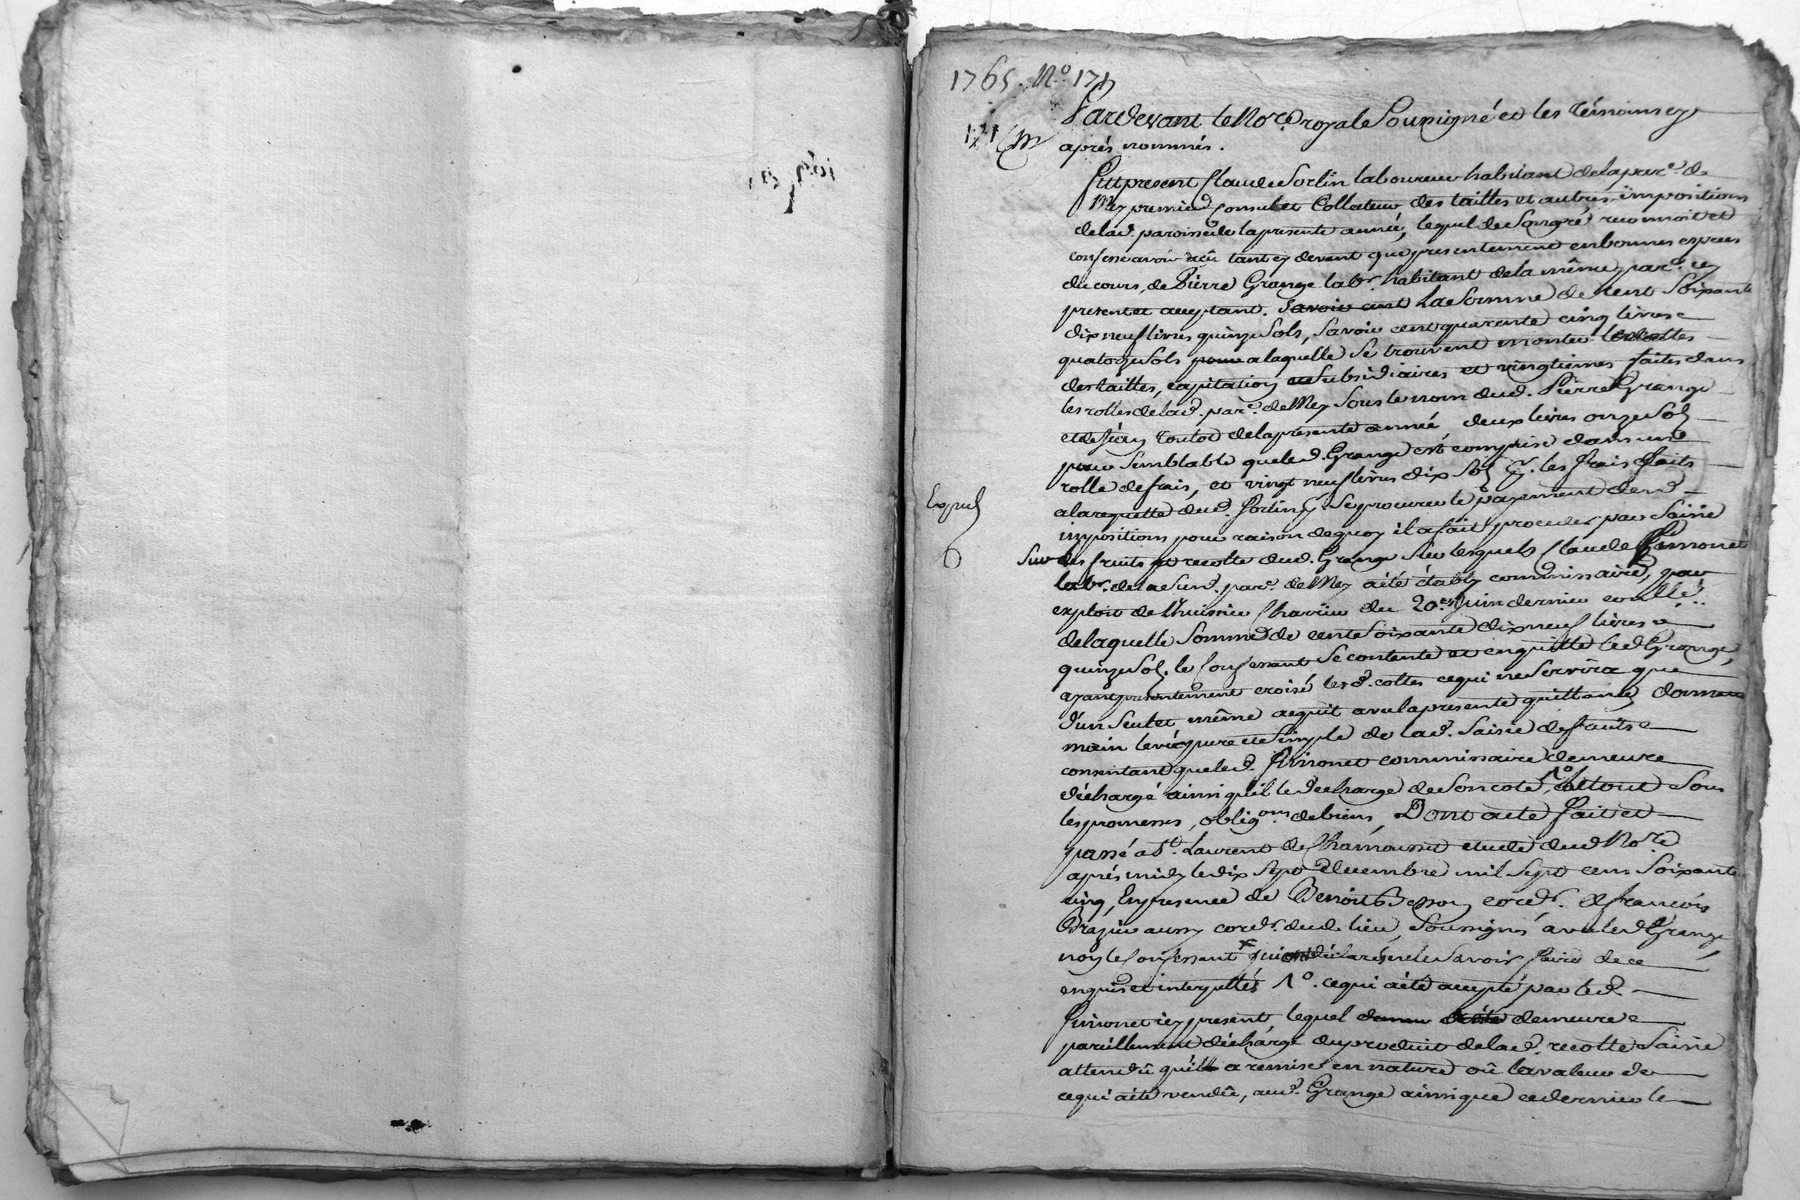 1765. N.o 171
Pardevant le No.re royale Soussigné et les témoins cy
après nommés.
fut présent Claude Sorlin laboureur habitant de la par.e de
Mey premier Consul et Collecteur des tailles et autres impositions
de lad. paroisse de la presente année, lequel de Son gré reconnoit et
confesse avoir reçû tant cy devant que presentement en bonnes especes
du cours, de Pierre Grange lab.r habitant de la même par.e cy
present et acceptant. Savoir cent La Somme de Cent Soixante
dix neuf livres quinze Sols, Savoir cent quarente cinq livres
quatorze Sols pour a laquelle Se trouvent monter les cottes
des tailles, capitation et Subsidiaires et vingtiemes faites dans
les rolles de lad. par.e de Mey Sous le nom dud. Pierre Grange
et de Jean de la presente année, deux livres onze Sols
pour Semblable que led. Grange est comprise dans une
rolle de frais, et vingt neuf livres dix Sols p.r les frais faits
a la requette dud. Sorlin p.r Se procurer le payement desd.
impositions pour raison de quoy il a fait proceder par Saisie
Sur les fruits et recolte dud. Grange Sur lesquels Claude
lab.r de la Susd. par.e de Mey a été étably commissaire, par
exploit de l'huissier Charrin du 20.e Juin dernier
de laquelle Somme de cent Soixante dix neuf livres
quinze Sols le Confessant Se contente et en quitte led. Grange,
ayant presentement croisé lesd. cottes ce qui ne Servira que
d'un Seul et même acquit avec la presente quittance, donnant
main levée pure et Simple de lad. Saisie de fruits
consentant que led. commissaire demeure
déchargé ainsi qu'il le décharge de Son coté, et tout Sous
les promesses, oblig.ons de biens, Dont acte fait et
passé a S.t Laurent de Chamousset etude dud. No.re
après midy le dix Sept decembre mil Sept cens Soixante
cinq, En presence de Benoit Besson cord.r et françois
Brazier aussy cord.r dud. lieu, Soussignés avec led. Grange,
non le Confessant qui a declaré ne le Savoir faire de ce
enquis et interpellés ce qui a été accepté par led.
icy present, lequel demeure
pareillement déchargé du produit de lad. recolte Saisie
attendû qu'il a remise en nature oû la valeur de
ce qui a été vendûe, aud. Grange ainsi que ce dernier le